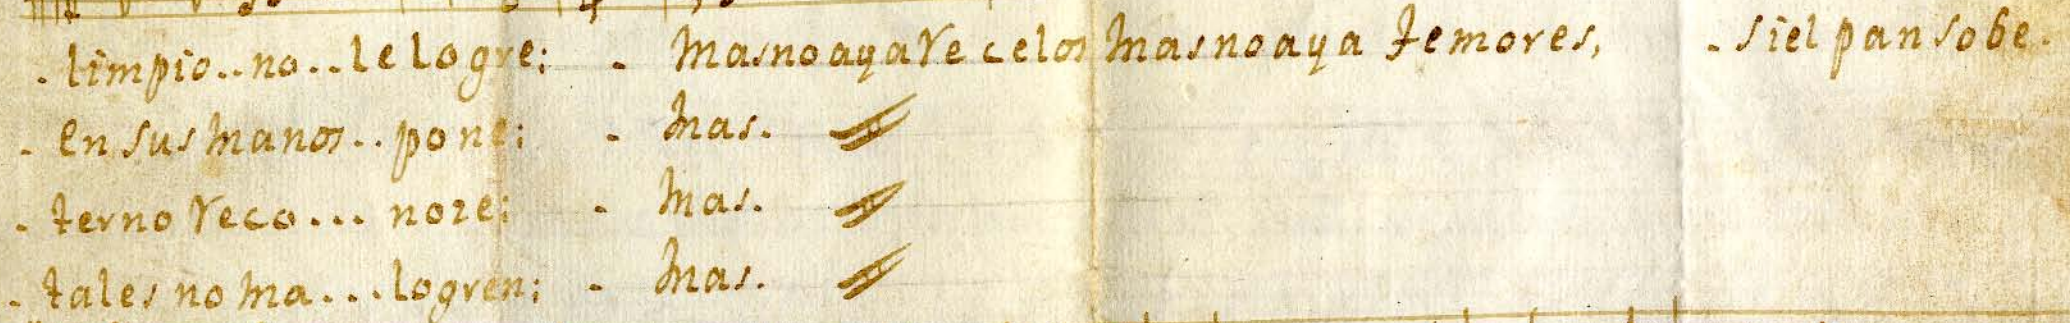 . limpio..no..le logre; . mas no aya recelos mas no aya temores, . si el pan sobe.
. en sus manos..pone; . mas. //
. terno reco... noze; . mas. //
. tales no ma...logren; . mas. //